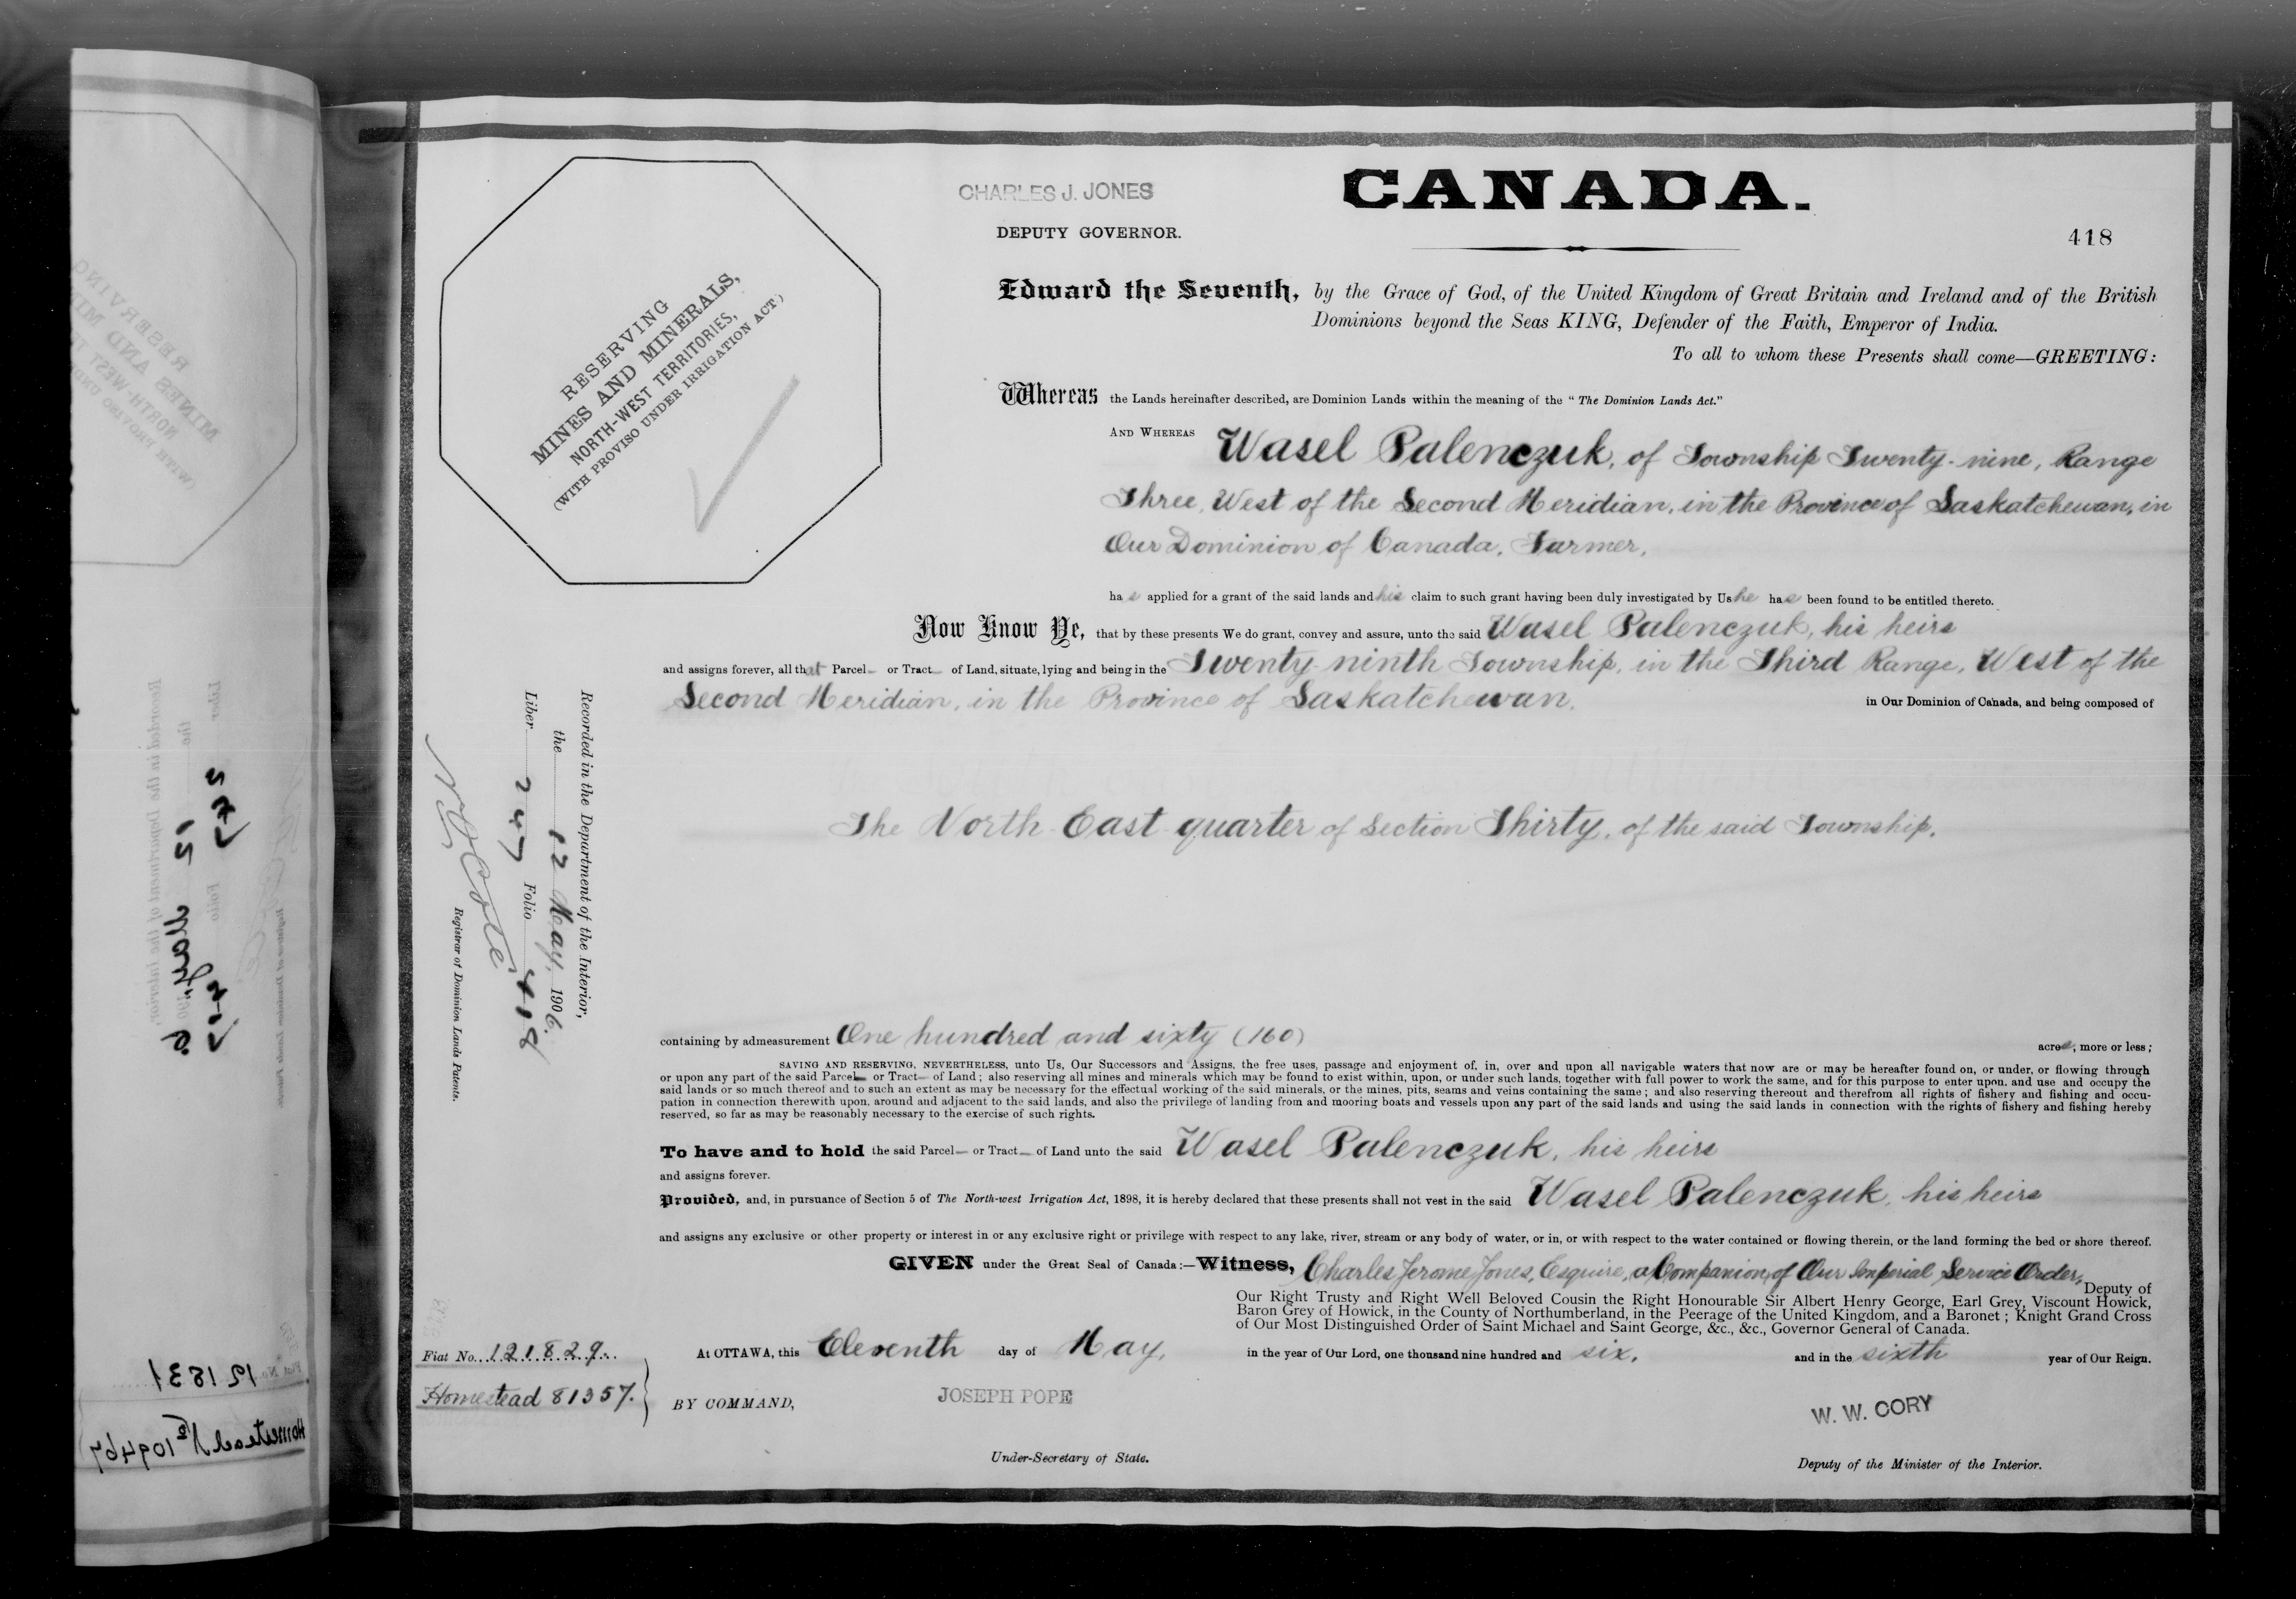 CHARLES J. JONES
CANADA.
DEPUTY GOVERNOR.
418
RESERVING
MINES AND MINERALS,
NORTH-WEST TERRITORIES,
(WITH PROVISO UNDER IRRIGATION ACT)
Edward the Seventh, by the Grace of God, of the United Kingdom of Great Britain and Ireland and of the British
Dominions beyond the Seas KING, Defender of the Faith, Emperor of India.
To all to whom these Presents shall come—GREETING:
Whereas the Lands hereinafter described, are Dominion Lands within the meaning of the "The Dominion Lands Act."
AND WHEREAS Wasel Palenczuk, of Township Twenty-nine, Range
Three, West of the Second Meridian, in the Province of Saskatchewan, in
Our Dominion of Canada, Farmer,
has applied for a grant of the said lands and his claim to such grant having been duly investigated by Us he has been found to be entitled thereto.
Now Know Ye, that by these presents We do grant, convey and assure, unto the said Wasel Palenczuk, his heirs
and assigns forever, all that Parcel— or Tract— of Land, situate, lying and being in the Twenty-ninth Township, in the Third Range, West of the
Second Meridian, in the Province of Saskatchewan, in Our Dominion of Canada, and being composed of
The North East quarter of Section Thirty, of the said Township,
Recorded in the Department of the Interior,
the 12 May, 1906.
Liber 247 Folio 418
Registrar of Dominion Lands Patents.
containing by admeasurement One hundred and sixty (160) acres, more or less;
SAVING AND RESERVING, NEVERTHELESS, unto Us, Our Successors and Assigns, the free uses, passage and enjoyment of, in, over and upon all navigable waters that now are or may be hereafter found on, or under, or flowing through
or upon any part of the said Parcel— or Tract— of Land; also reserving all mines and minerals which may be found to exist within, upon, or under such lands, together with full power to work the same, and for this purpose to enter upon, and use and occupy the
said lands or so much thereof and to such an extent as may be necessary for the effectual working of the said minerals, or the mines, pits, seams and veins containing the same; and also reserving thereout and therefrom all rights of fishery and fishing and occu-
pation in connection therewith upon, around and adjacent to the said lands, and also the privilege of landing from and mooring boats and vessels upon any part of the said lands and using the said lands in connection with the rights of fishery and fishing hereby
reserved, so far as may be reasonably necessary to the exercise of such rights.
To have and to hold the said Parcel— or Tract— of Land unto the said Wasel Palenczuk, his heirs
and assigns forever.
Provided, and, in pursuance of Section 5 of The North-west Irrigation Act, 1898, it is hereby declared that these presents shall not vest in the said Wasel Palenczuk, his heirs
and assigns any exclusive or other property or interest in or any exclusive right or privilege with respect to any lake, river, stream or any body of water, or in, or with respect to the water contained or flowing therein, or the land forming the bed or shore thereof.
GIVEN under the Great Seal of Canada:—Witness, Charles Jerome Jones, Esquire, a Companion of Our Imperial Service Order, Deputy of
Our Right Trusty and Right Well Beloved Cousin the Right Honourable Sir Albert Henry George, Earl Grey, Viscount Howick,
Baron Grey of Howick, in the County of Northumberland, in the Peerage of the United Kingdom, and a Baronet; Knight Grand Cross
of Our Most Distinguished Order of Saint Michael and Saint George, &c., &c., Governor General of Canada.
At OTTAWA, this Eleventh day of May, in the year of Our Lord, one thousand nine hundred and six, and in the sixth year of Our Reign.
Fiat No. 121829.
Homestead 81357.
BY COMMAND,
JOSEPH POPE
Under-Secretary of State.
W. W. CORY
Deputy of the Minister of the Interior.
Fiat No. 121831
Homestead No 109467